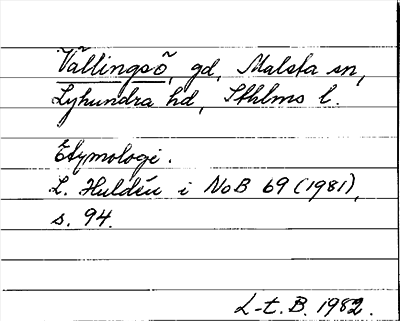 Vällingsö, gd, Malsta sn,
Lyhundra hd, Sthlms l.
Etymologi.
L. Huldén i NoB 69 (1981),
s. 94.
L-t. B. 1982.